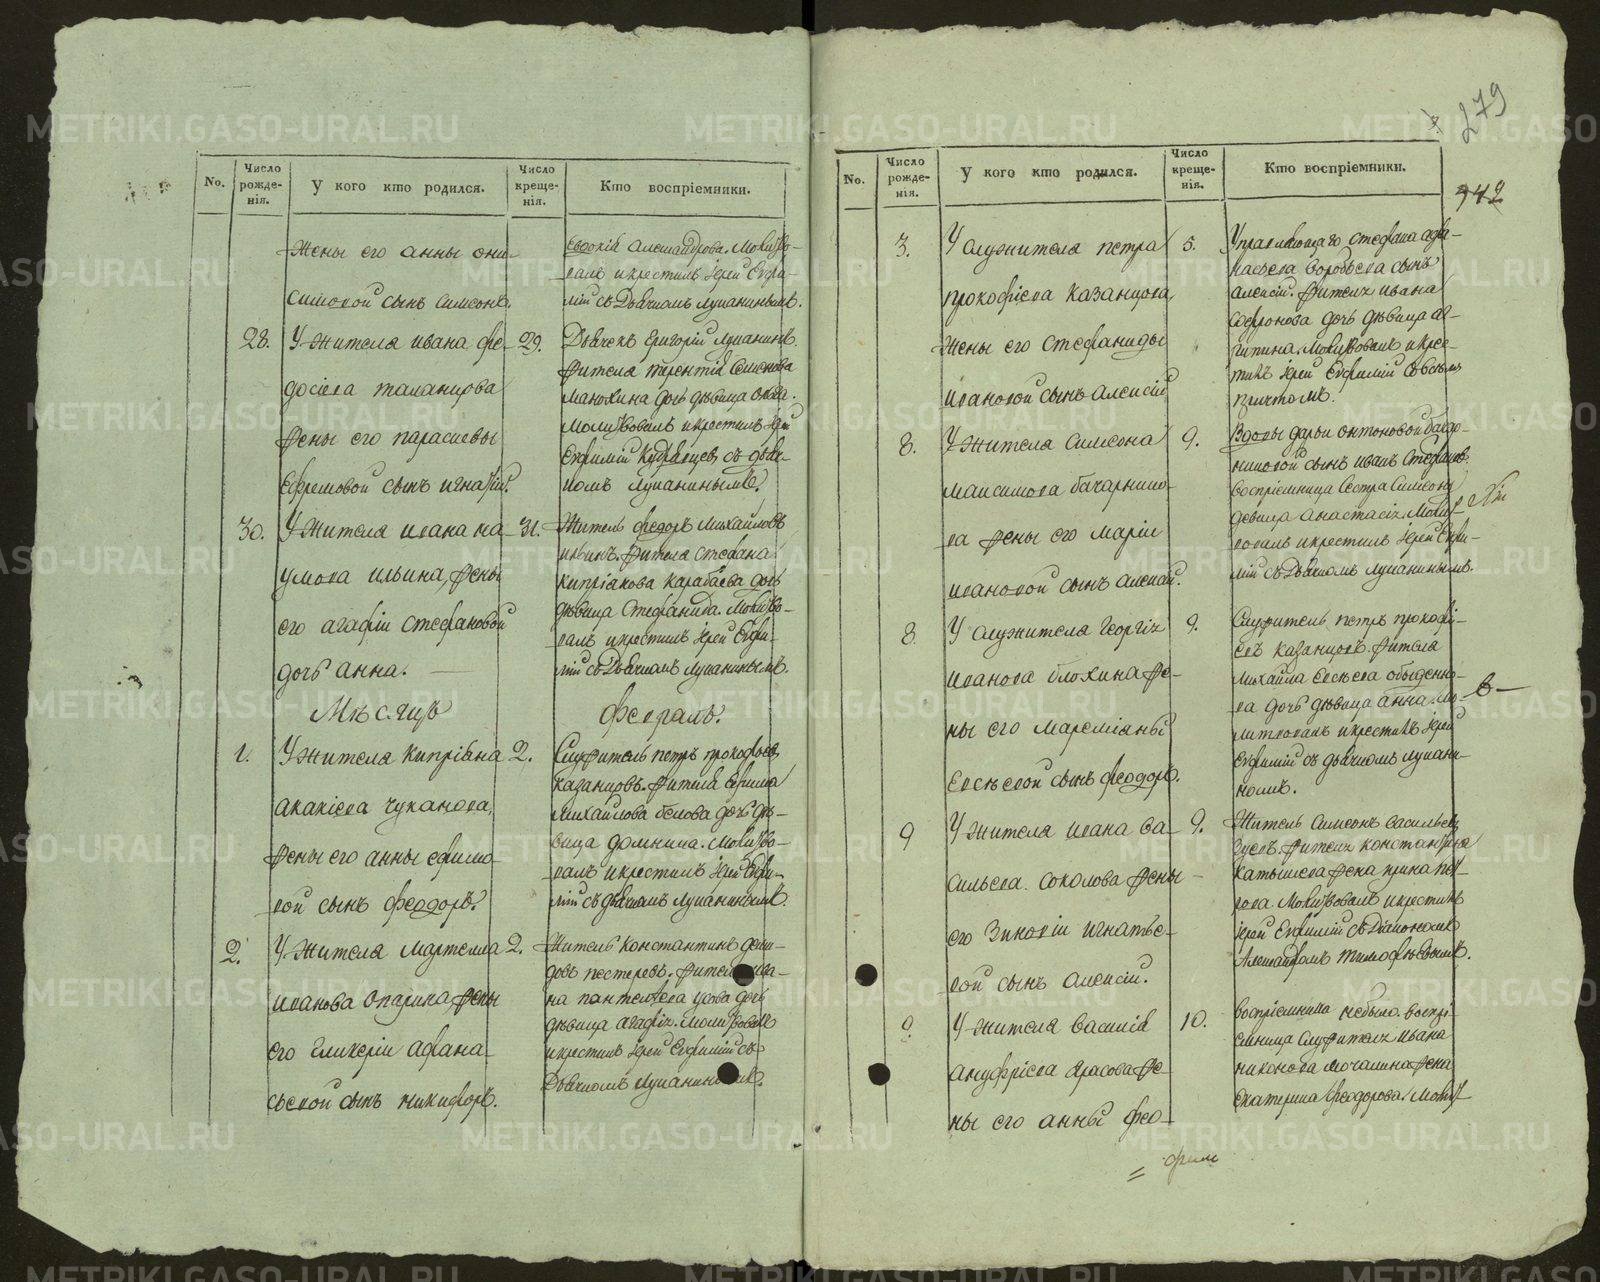 279
942
No.
Число рожде-нія.
У кого кто родился.
Число креще-нія.
Кто воспріемники.
жены его анны они-
симовой сынъ симеонъ.
Евдокія Александрова. Молитво-
валъ и крестилъ іерей Евфи-
мій съ Дьячкомъ Лупанинымъ.
28.
У жителя ивана фе-
досіева таланцова
жены его парасковьи
Ефремовой сынъ игнатій.
29.
Дьячекъ григорій лупанинъ.
жителя терентія Семенова
Манохина дочь дѣвица
молитвовалъ и крестилъ іерей
Евфимій Кудрявцевъ съ дьяч-
комъ лупанинымъ.
30.
У жителя ивана на-
умова ильина, жены
его агафіи стефановой
дочь анна.
31.
Житель федоръ михайловъ
ильинъ. жителя стефана
кипріанова карабаева дочь
дѣвица Стефанида. Молитво-
валъ и крестилъ іерей Евфи-
мій съ Дьячкомъ лупанинымъ.
Мѣсяцъ
февраль.
1.
У жителя кипріана
акакіева чуканова,
жены его анны ефимо-
вой сынъ феодоръ.
2.
Служитель петръ прокофьевъ
казанцовъ. жителя ефима
михайлова белова дочь дѣ-
вица домника. молитво-
валъ и крестилъ іерей Евфи-
мій съ дьячкомъ Лупанинымъ.
2.
У жителя мартемиа
иванова опарина жены
его гликеріи афана-
сьевой сынъ никифоръ.
2.
Житель константинъ деми-
довъ пестеревъ. жителя ива-
на пантелеева усова дочь
дѣвица агафія. молитвовалъ
и крестилъ іерей Евфимій съ
Дьячкомъ Лупанинымъ.
No.
Число рожде-нія.
У кого кто родился.
Число креще-нія.
Кто воспріемники.
3.
У служителя петра
прокофіева казанцова,
жены его стефаниды
ивановой сынъ алексій
5.
Управляющаго стефана афа-
насьева воробьева сынъ
алексій. жителя ивана
софронова дочь дѣвица аг-
рипина. Молитвовалъ и крес-
тилъ іерей Евфимій со всѣмъ
причтомъ.
8.
У жителя симеона
максимова бачарнико-
ва жены его маріи
ивановой сынъ алексій.
9.
Вдовы дарьи онтоновой бачар-
никовой сынъ иванъ Стефановъ.
воспріемница сестра Симеону
девица анастасія. Молит-
вовалъ и крестилъ іерей Евфи-
мій съ Дьячкомъ лупанинымъ.
8.
У служителя георгія
иванова блохина же-
ны его мареміаны
Евсѣевой сынъ феодоръ.
9.
Служитель петръ прокофі-
евъ казанцовъ. жителя
михаила Евсѣева обыденно-
ва дочь дѣвица анна. Мо-
литвовалъ и крестилъ іерей
Евфимій съ дьячкомъ лупани-
нымъ.
9
У жителя ивана ва-
сильева соколова жены
его Зиновіи игнатье-
вой сынъ алексій.
9.
Житель симеонъ васильевъ
жителя константина
катышева жена ирина пет-
рова молитвовалъ и крестилъ
іерей Евфимій съ Діакономъ
Александромъ тимофѣевымъ.
9.
У жителя василія
ануфріева ярасова же-
ны его анны фео-
10.
Воспріемника не было. воспрі-
емница служителя ивана
никонова мочалина жена
екатерина феодорова. Молит-